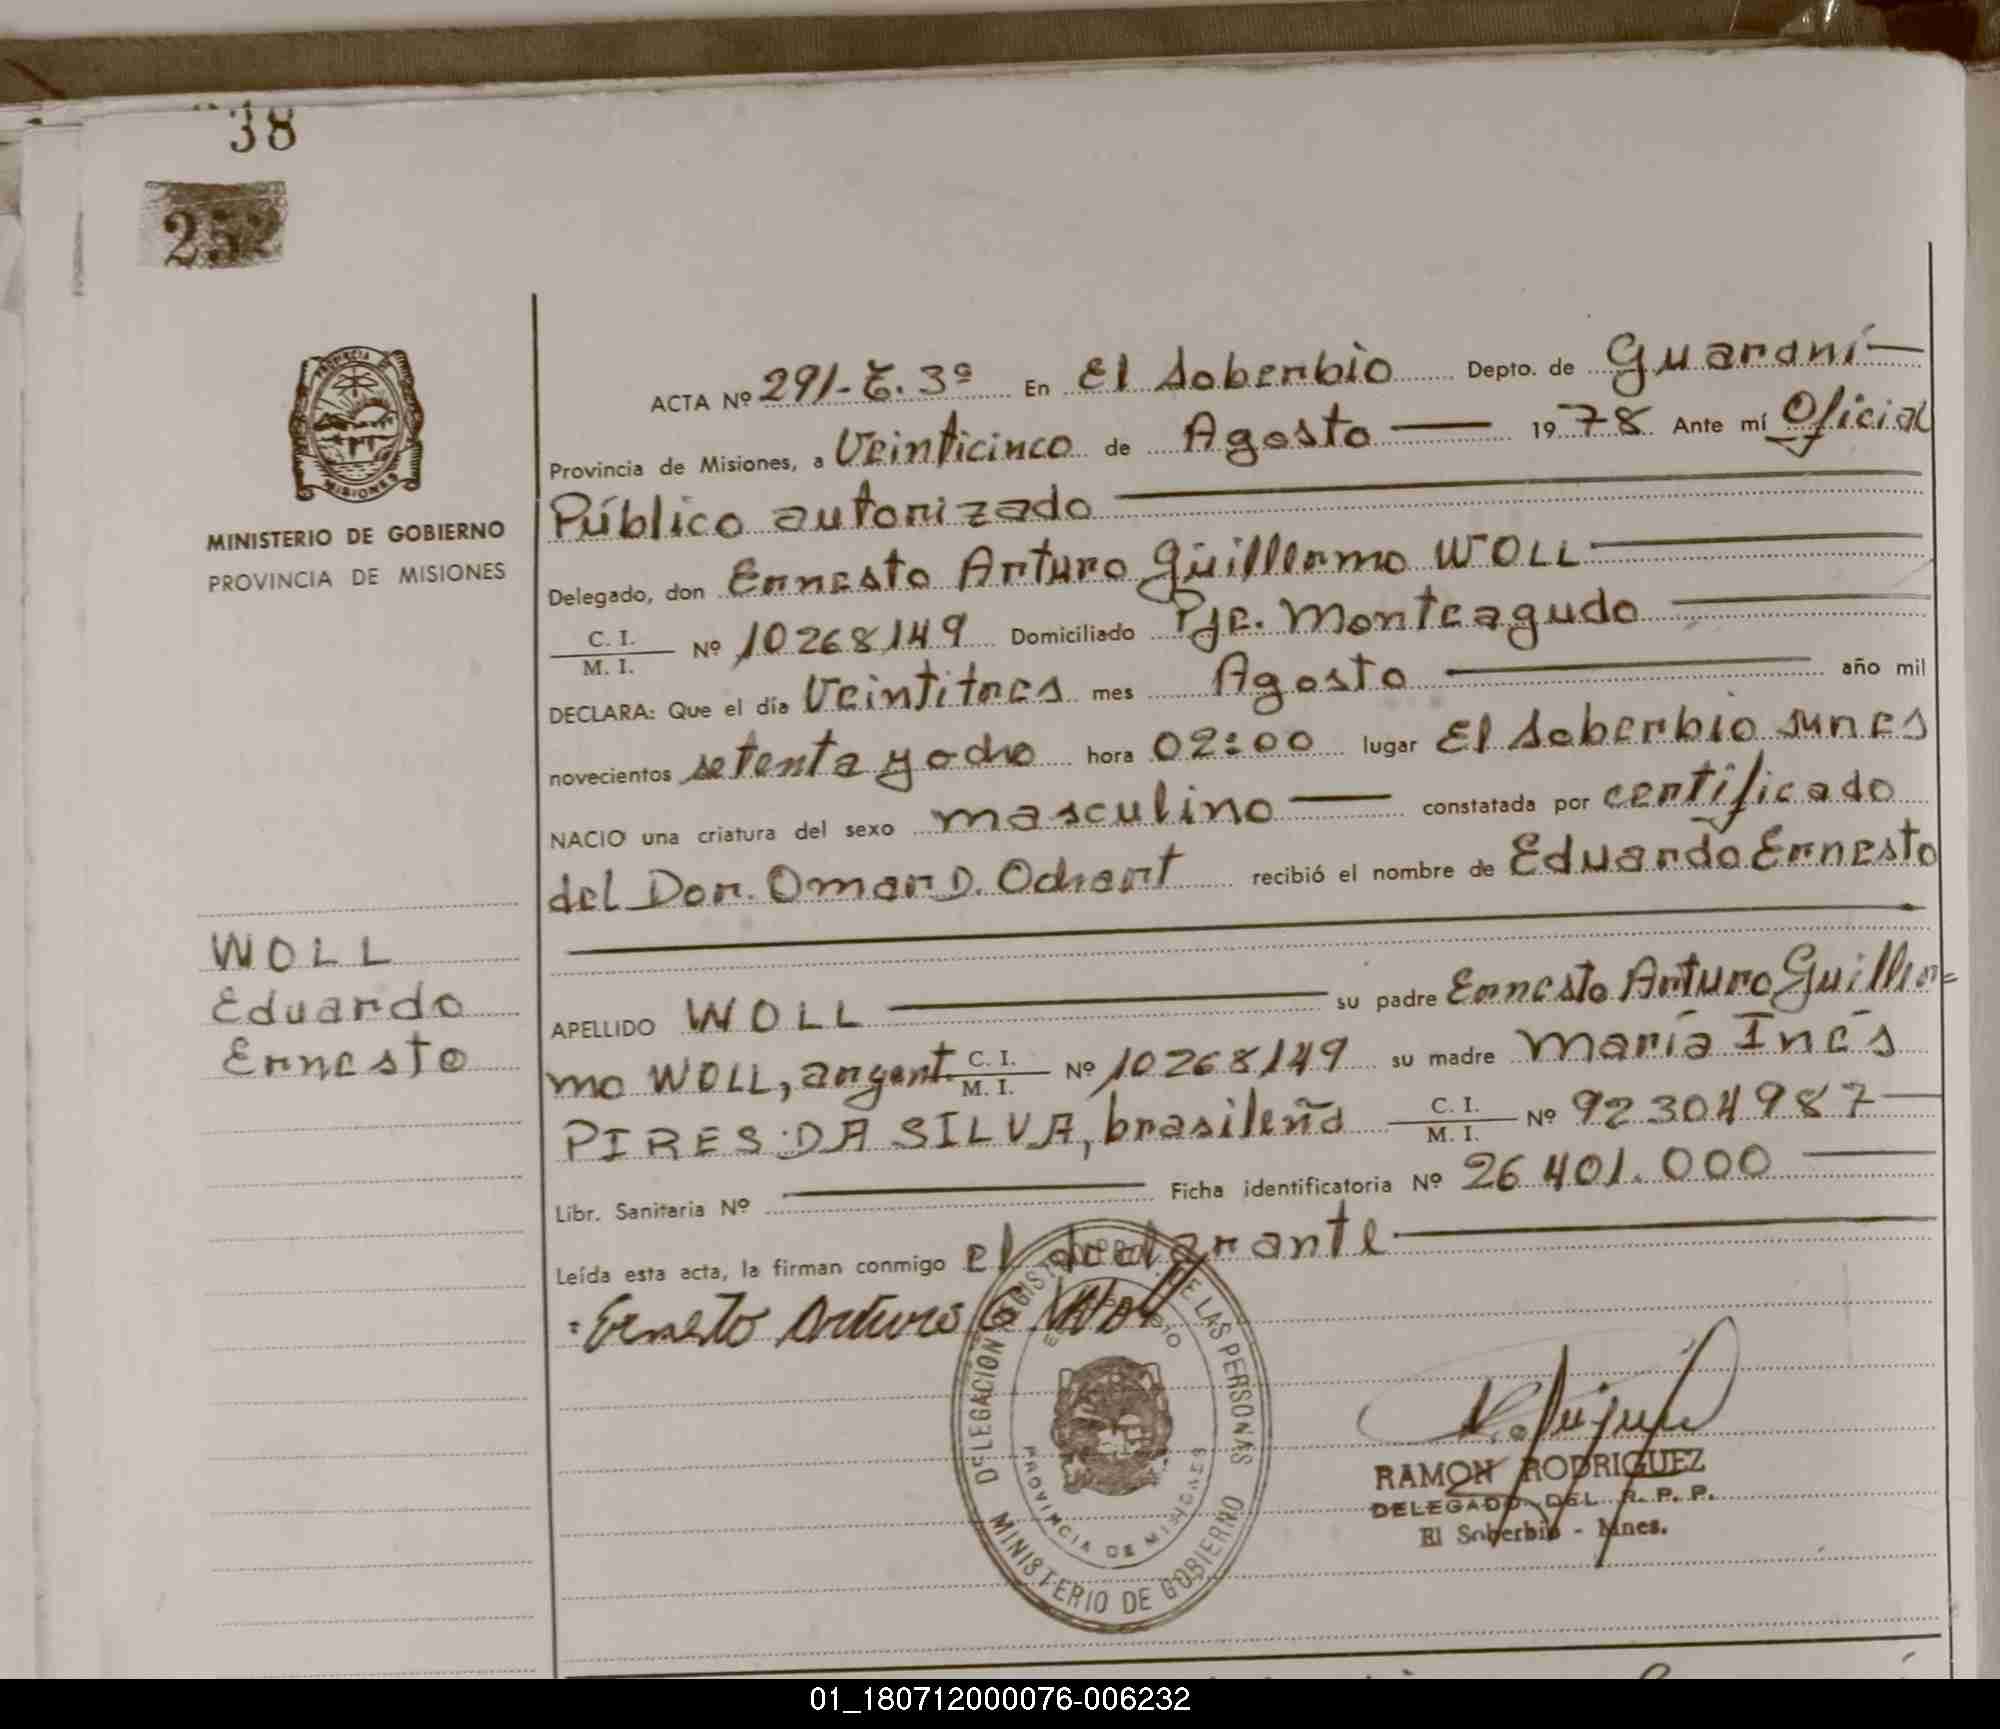 38
252
MINISTERIO DE GOBIERNO
PROVINCIA DE MISIONES
ACTA Nº 291-T. 3º En El Soberbio Depto. de Guaraní
Provincia de Misiones, a Veinticinco de Agosto 1978 Ante mí Oficial
Público autorizado
Delegado, don Ernesto Arturo Guillermo WOLL
C. I. / M. I. Nº 10268149 Domiciliado Pje. Monteagudo
DECLARA: Que el día Veintitres mes Agosto año mil
novecientos setenta y ocho hora 02:00 lugar El Soberbio
NACIO una criatura del sexo masculino constatada por certificado
del Dor. Omar D. recibió el nombre de Eduardo Ernesto
WOLL
Eduardo
Ernesto
APELLIDO WOLL su padre Ernesto Arturo Guiller=
mo WOLL, argent. C. I. / M. I. Nº 10268149 su madre María Inés
PIRES DA SILVA, brasileña C. I. / M. I. Nº 92304987
Libr. Sanitaria Nº Ficha identificatoria Nº 26401.000
Leída esta acta, la firman conmigo el declarante
Ernesto Arturo G Woll
DELEGACIÓN DE LAS PERSONAS
PROVINCIA DE MISIONES
MINISTERIO DE GOBIERNO
RAMON RODRIGUEZ
DELEGADO DEL R. P. P.
El Soberbio - Mnes.
01_180712000076-006232